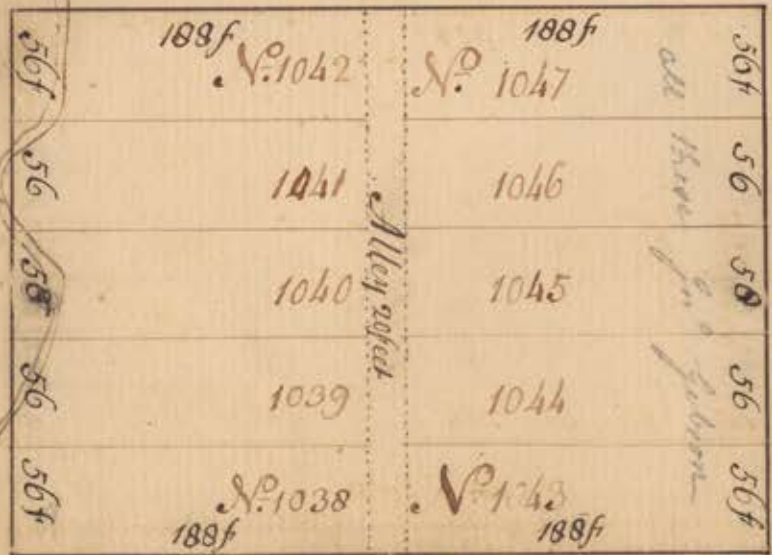 188f 188f
56f No. 1042 No. 1047 56f
56 1041 1046 56
58 1040 1045 58
56 1039 1044 56
56f No. 1038 No. 1043 56f
188f 188f
Alley 20 feet
all these Jno Gibson